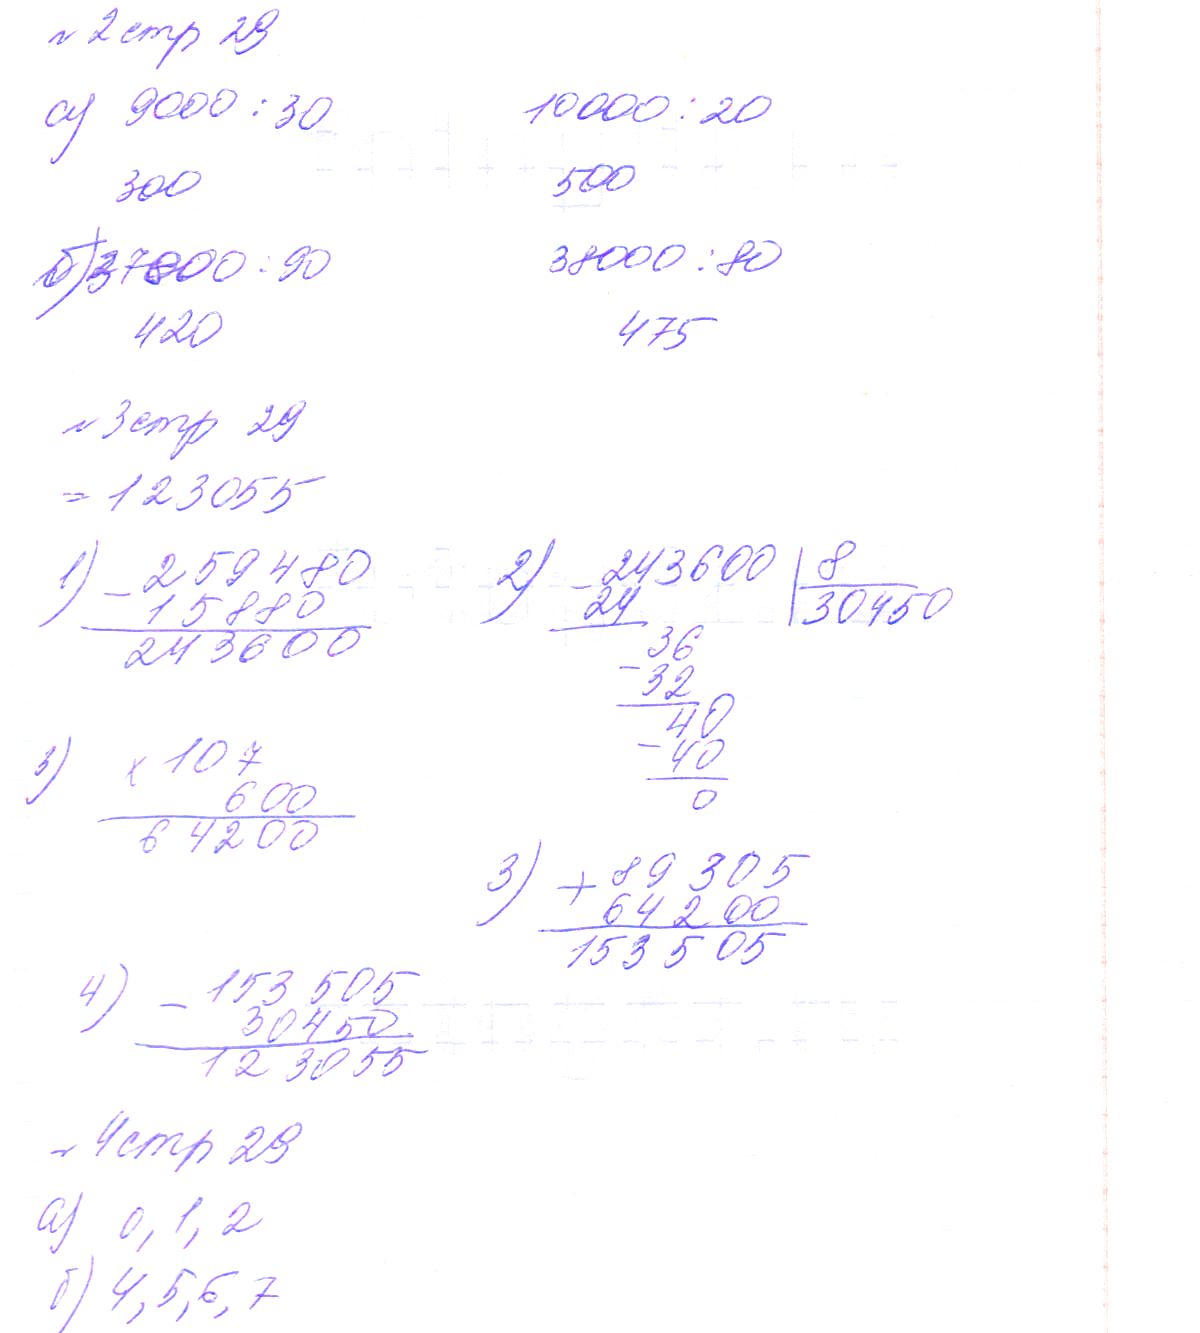 № 2 стр 29
а) 9000 : 30 10000 : 20
300 500
б) 37800 : 90 38000 : 80
420 475
№ 3 стр 29
= 123055
1) - 259480
15880
243600
2) - 243600 | 8
24 30450
36
- 32
40
- 40
0
3) × 107
600
64200
3) + 89305
64200
153505
4) - 153505
30450
123055
№ 4 стр 29
а) 0, 1, 2
б) 4, 5, 6, 7